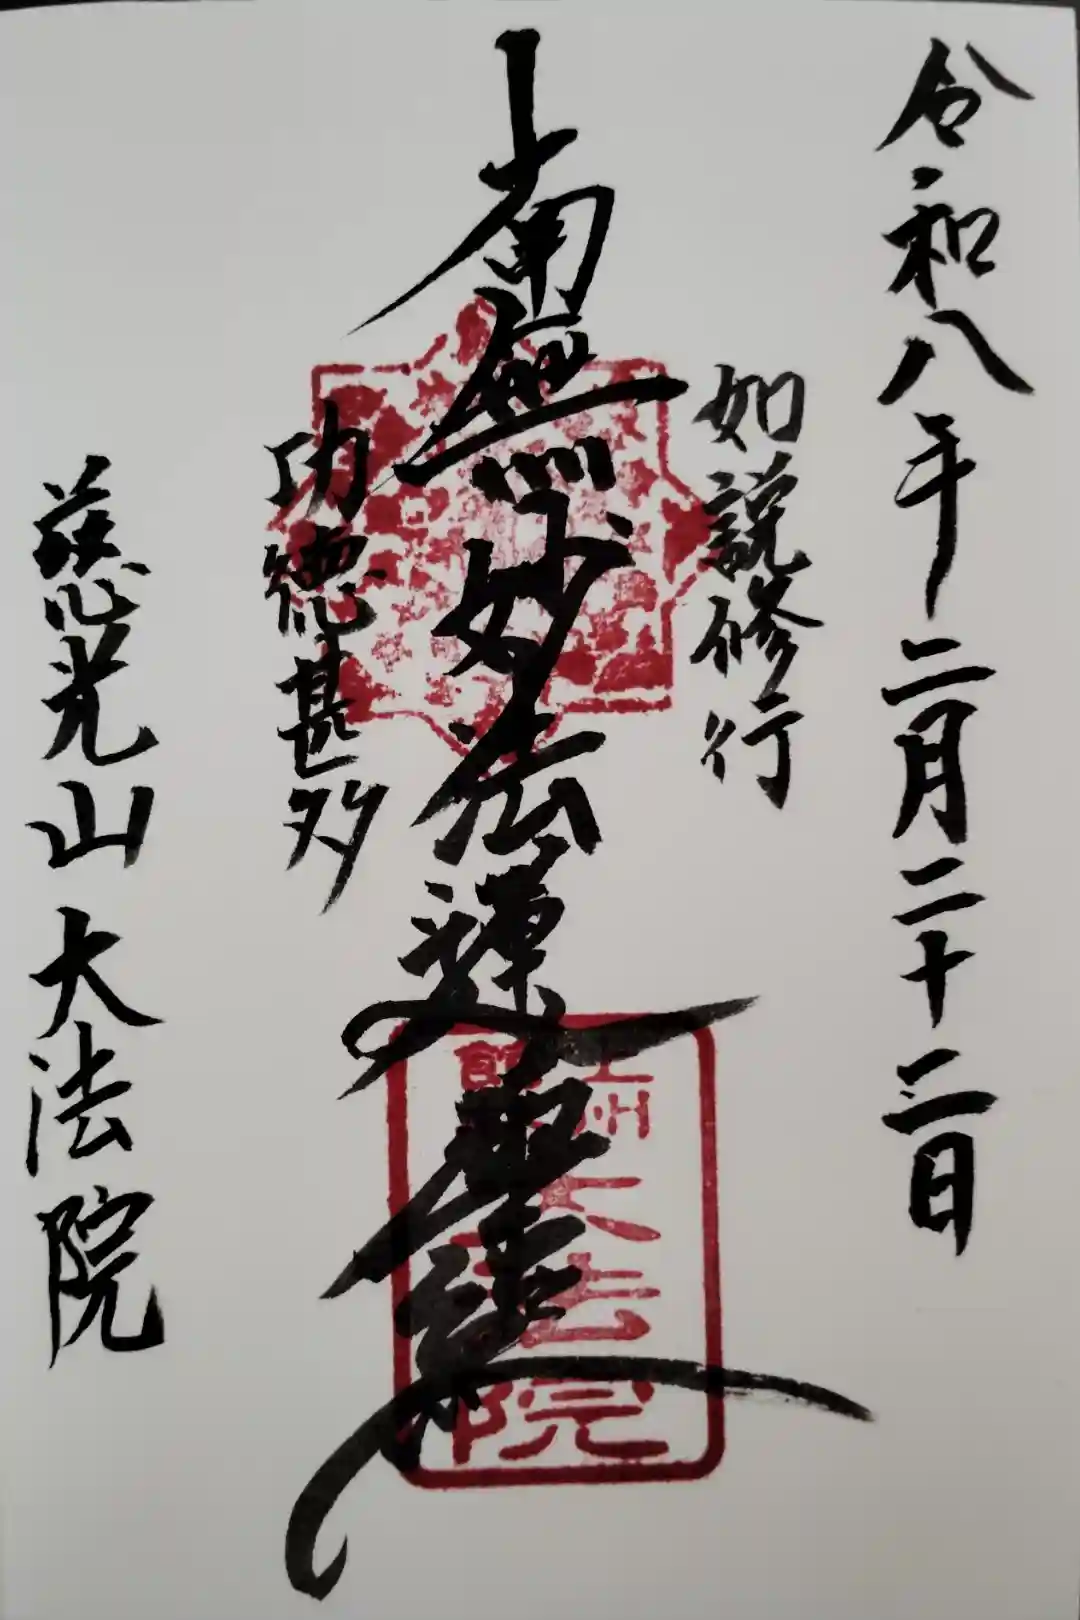 令和八年二月二十三日
如説修行
南無妙法蓮華経
功徳甚多
慈光山大法院
大法院